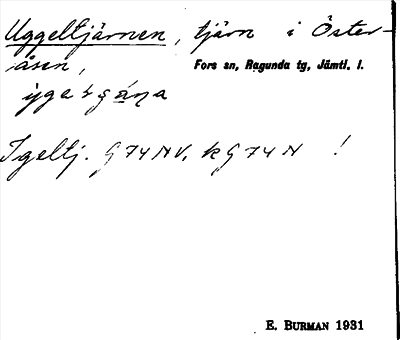 Uggeltjärnen, tjärn i Öster-
åsen, Fors sn, Ragunda tg, Jämtl. l.
Igeltj. G 74 NV, kG 74 N !
E. BURMAN 1931